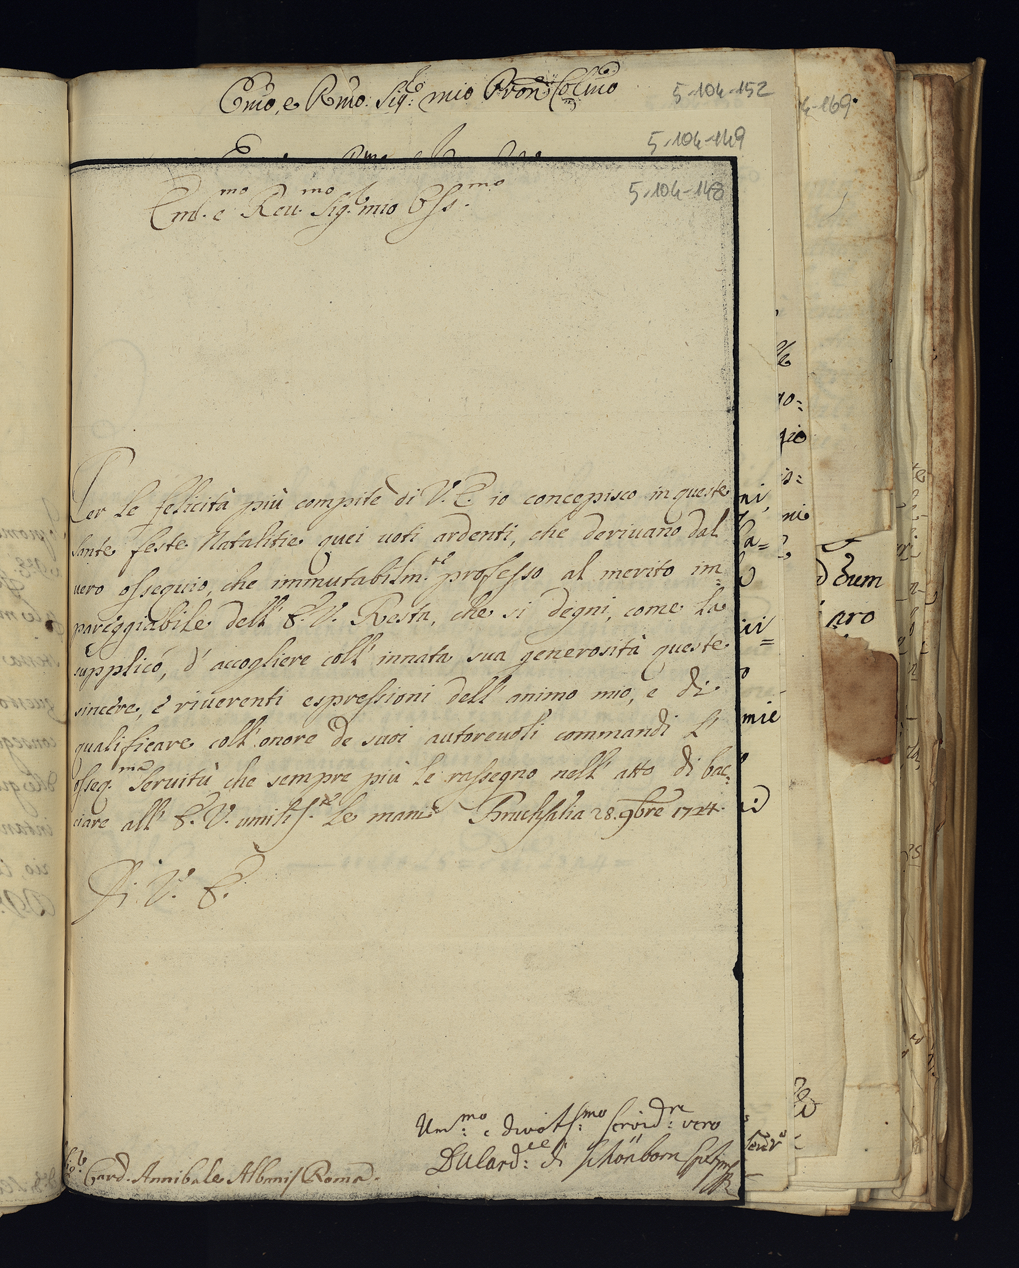 Emo, e Rmo: Sig:re mio Pron: Colmo
5-104-152
4-169
5-104-149
5-104-148
Em.mo e Reu.mo Sig.re mio Oss.mo
Per le felicità più compite di V.E. io concepisco in queste
sante feste Natalitie quei uoti ardenti, che deriuano dal
uero ossequio, che immutabilm.te professo al merito im=
pareggiabile dell' E.V. Resta, che si degni, come la
supplico, d' accogliere coll' innata sua generosità queste
sincere, e riuerenti espressioni dell' animo mio, e di
qualificare coll' onore de suoi autoreuoli commandi l'
osseq.ma seruitù che sempre più le rassegno nell' atto di bac=
ciare all' E.V. umiliss.te le mani. Bruchsalia 28. 9bre 1724.
Di V. E.
Um:mo e diuotiss:mo seruid:re uero
DelCard:le di Schönborn
Card. Annibale Albani / Roma.